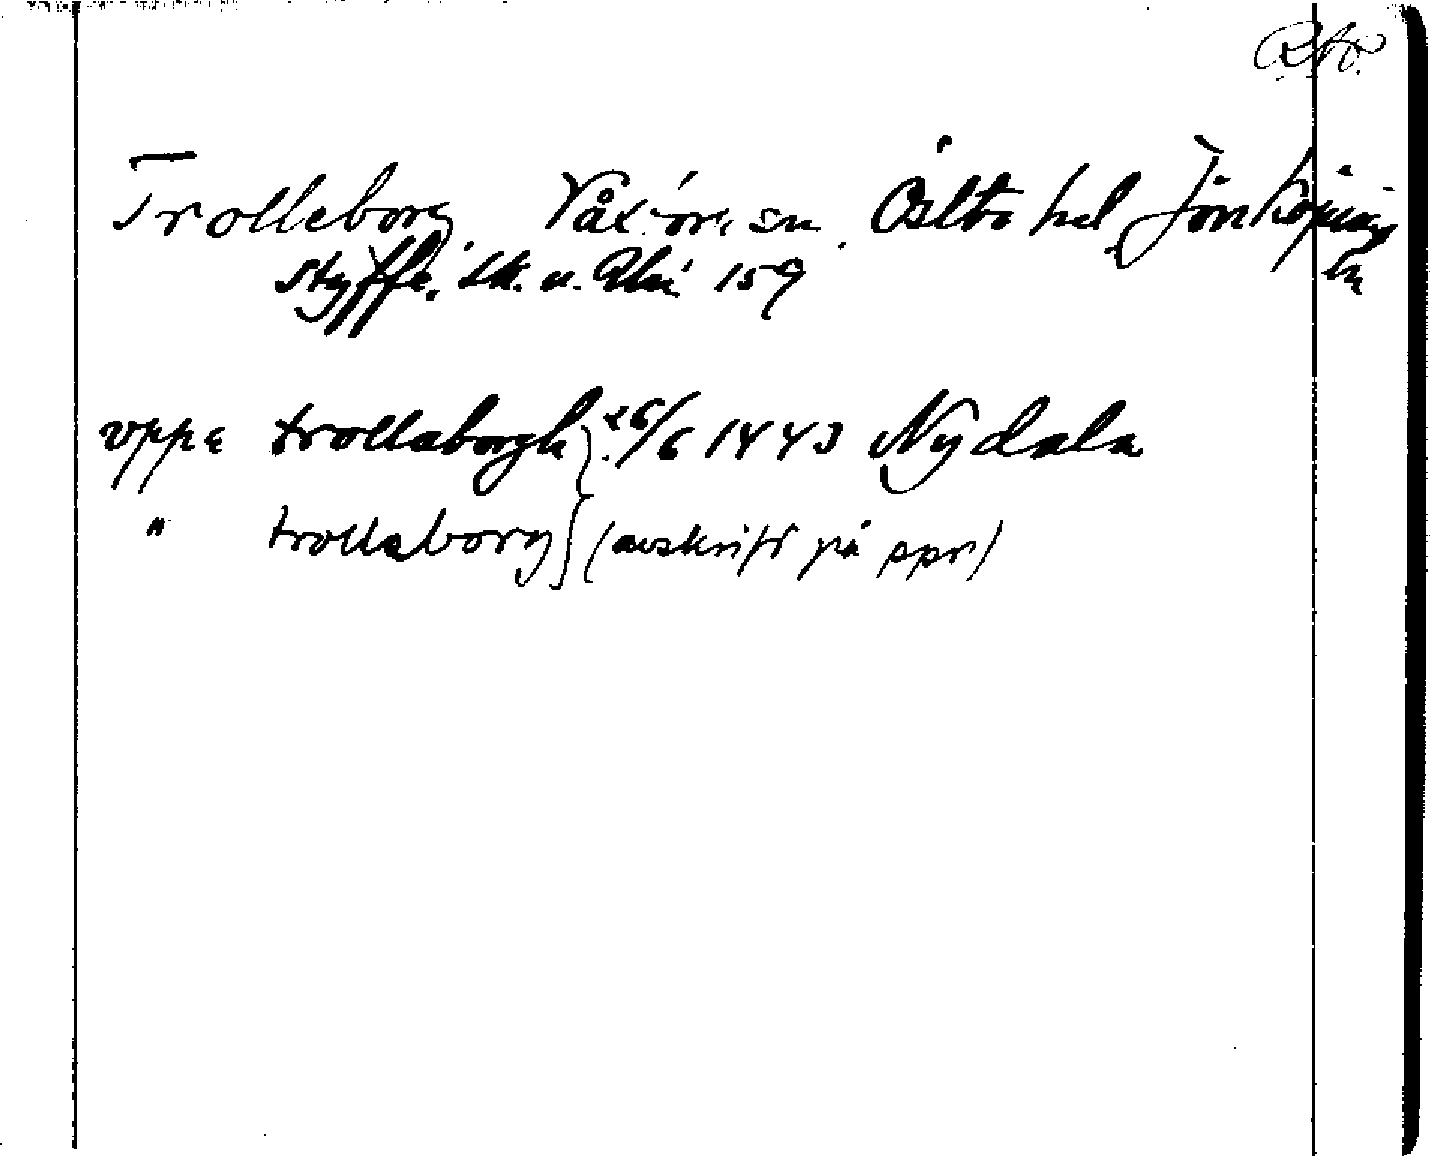 RAP.
Trolleborg Våxtorp sn. Östbo hd, Jönköpings
län
Styffe, Sk. u. Un. 159
uppe trollaborgh } 26/6 1443 Nydala
" trollaborg } (avskrift på ppr)